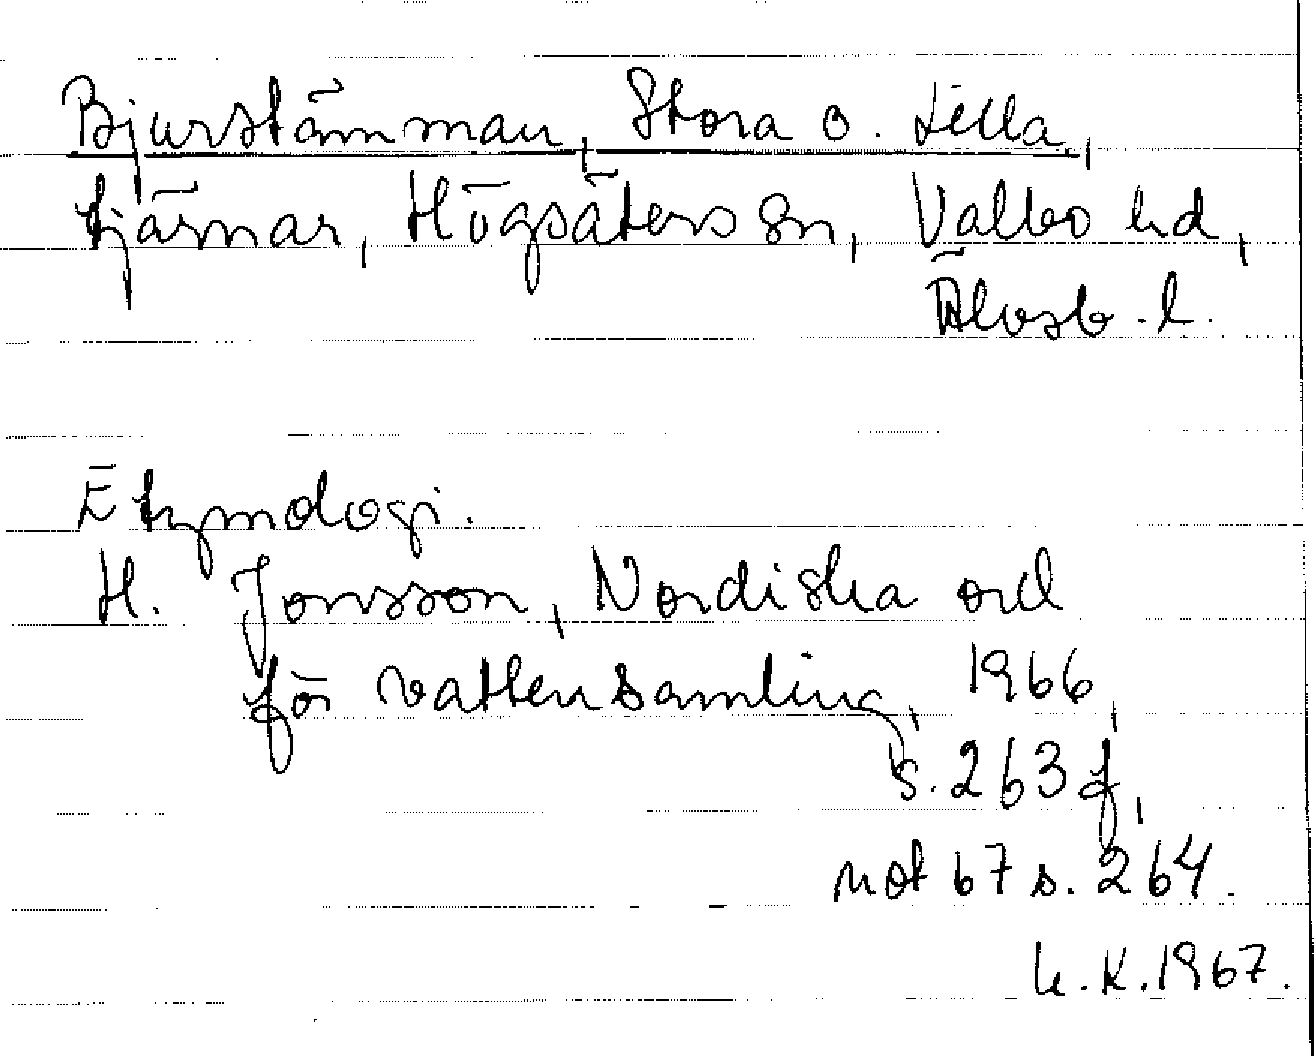 Bjurstämman, Stora o. Lilla,
tjärnar, Högsäters sn, Valbo hd,
Älvsb. l.
Etymologi.
H. Jonsson, Nordiska ord
för vattensamling, 1966,
s. 263 f,
not 67 s. 264.
K. K. 1967.